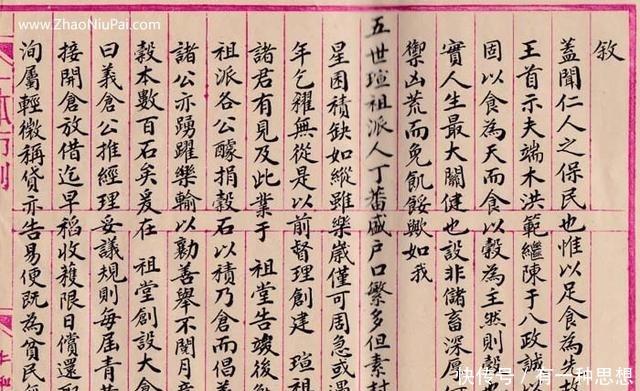 www.ZhaoNiuPai.com
敘
蓋聞仁人之保民也惟以足食為
王首示夫端木洪範繼陳于八政誠
固以食為天而食以穀為主然則穀
實人生最大關健也設非儲畜深
禦凶荒而免飢餒歟如我
五世瑄祖派人丁蕃盛戶口繁多但素封
星困積缺如縱雖樂歲僅可周急或遇
年乞糴無從是以前督理創建 瑄祖
諸君有見及此業于 祖堂告竣後
祖派各公醵捐穀石以積乃倉而倡義
諸公亦踴躍樂輸以勷善舉不閱月
穀本數百石矣爰在 祖堂創設大倉
曰義倉公推經理妥議規則每屆青
接開倉放借迄早稻收穫限日償還
洵屬輕微稱貸亦告易便既為貧民
快传号 / 有一种思想